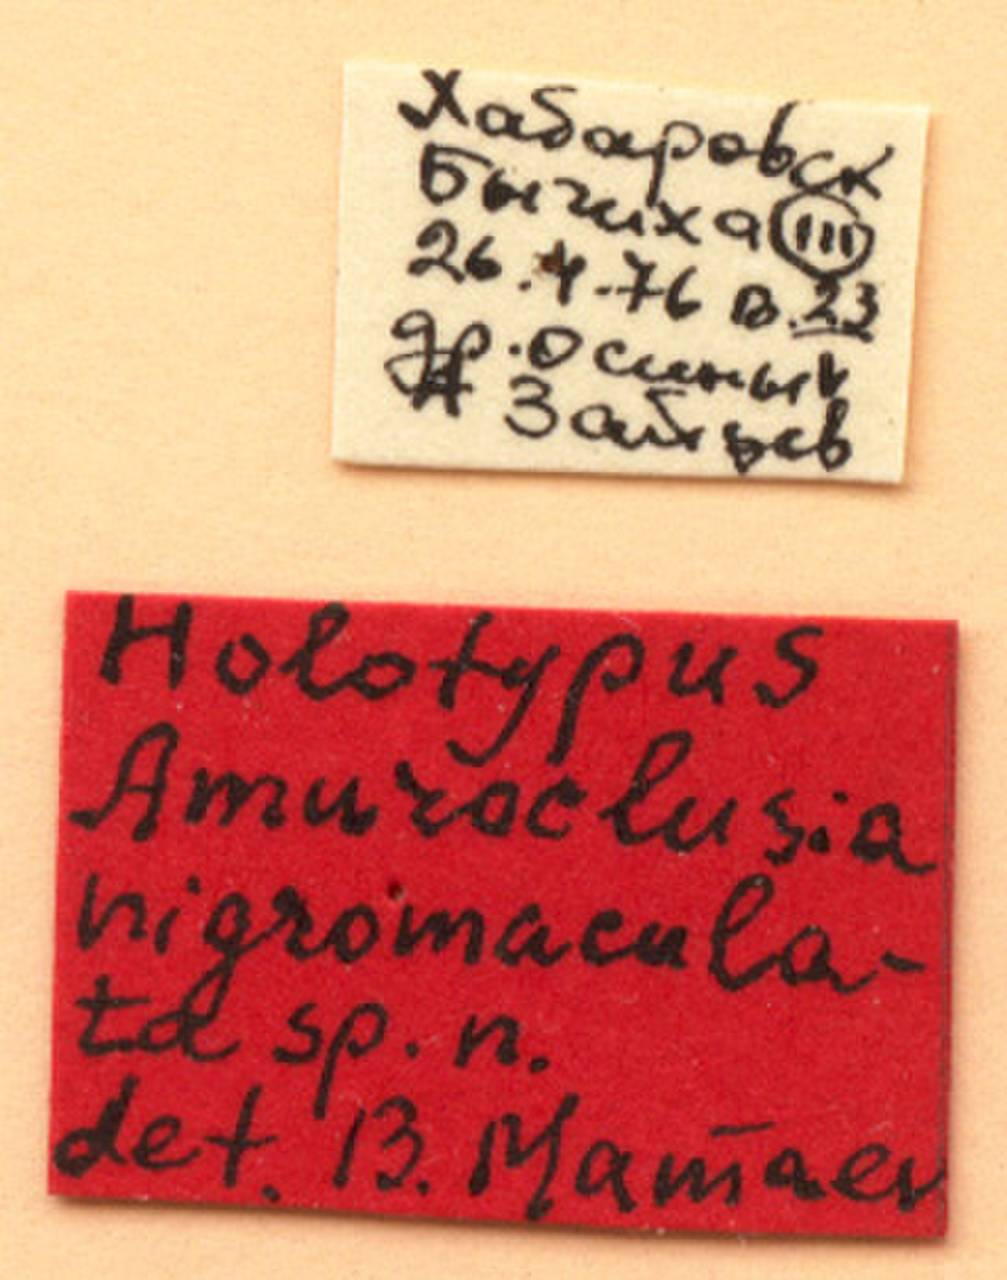 Хабаровск
Бычиха III
26.4.76 в.23
др. осины
Зайцев
Holotypus
Amuroclusia
nigromacula-
ta sp. n.
det. B. Mamaev